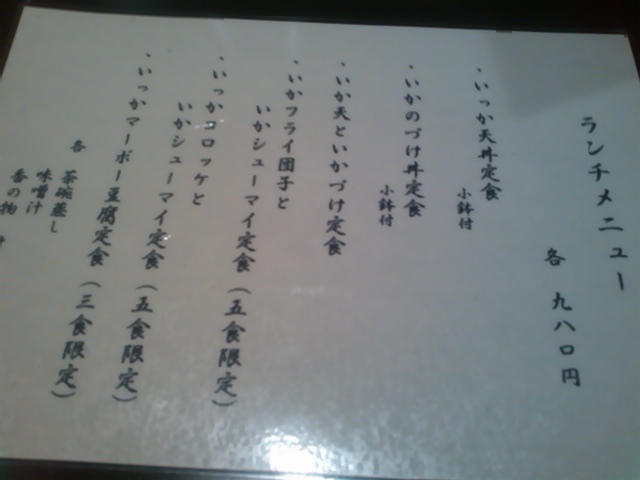 ランチメニュー
各 九八〇円
・いっか天丼定食
小鉢付
・いかのづけ丼定食
小鉢付
・いか天といかづけ定食
・いかフライ団子と
いかシューマイ定食(五食限定)
・いっかコロッケと
いかシューマイ定食(五食限定)
・いっかマーボー豆腐定食(三食限定)
各 茶碗蒸し
味噌汁
香の物